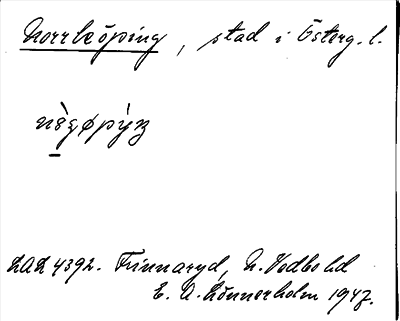 Norrköping, stad i Österg. l.
LAL 4392. Finnaryd, N. Vedbo hd
E. A. Lönnerholm 1947.